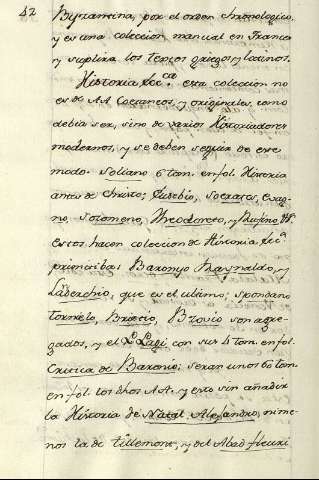 42
Byzantina, por el orden chronologico,
y es una coleccion manual en Francia
y supliria los textos griegos y latinos.
Historia Ecc.ca esta coleccion no
es de AA Coetaneos, y originales, como
debia ser, sino de varios Historiadores
modernos, y se deben seguir de este
modo. Soliano 6 tom. en fol. Historia
antes de Christo; Eusebio, Socrates, Evag-
rio, Sozomeno, Theodoreto, y Rufino
Estos hacen coleccion de Historia Ecc.a
primitiba: Baronyo Raynaldo, y
Laderchio, que es el ultimo; Spondano
Tornielo, Briecio, Brovio son agre-
gados, y el P. Pagi con sus 4 tom. en fol.
Critica de Baronio; seran unos 60 tom.
en fol. los dhos AA. y esto sin añadir
la Historia de Natal Alejandro, ni me-
nos la de Tillemont, y del Abad fleuri